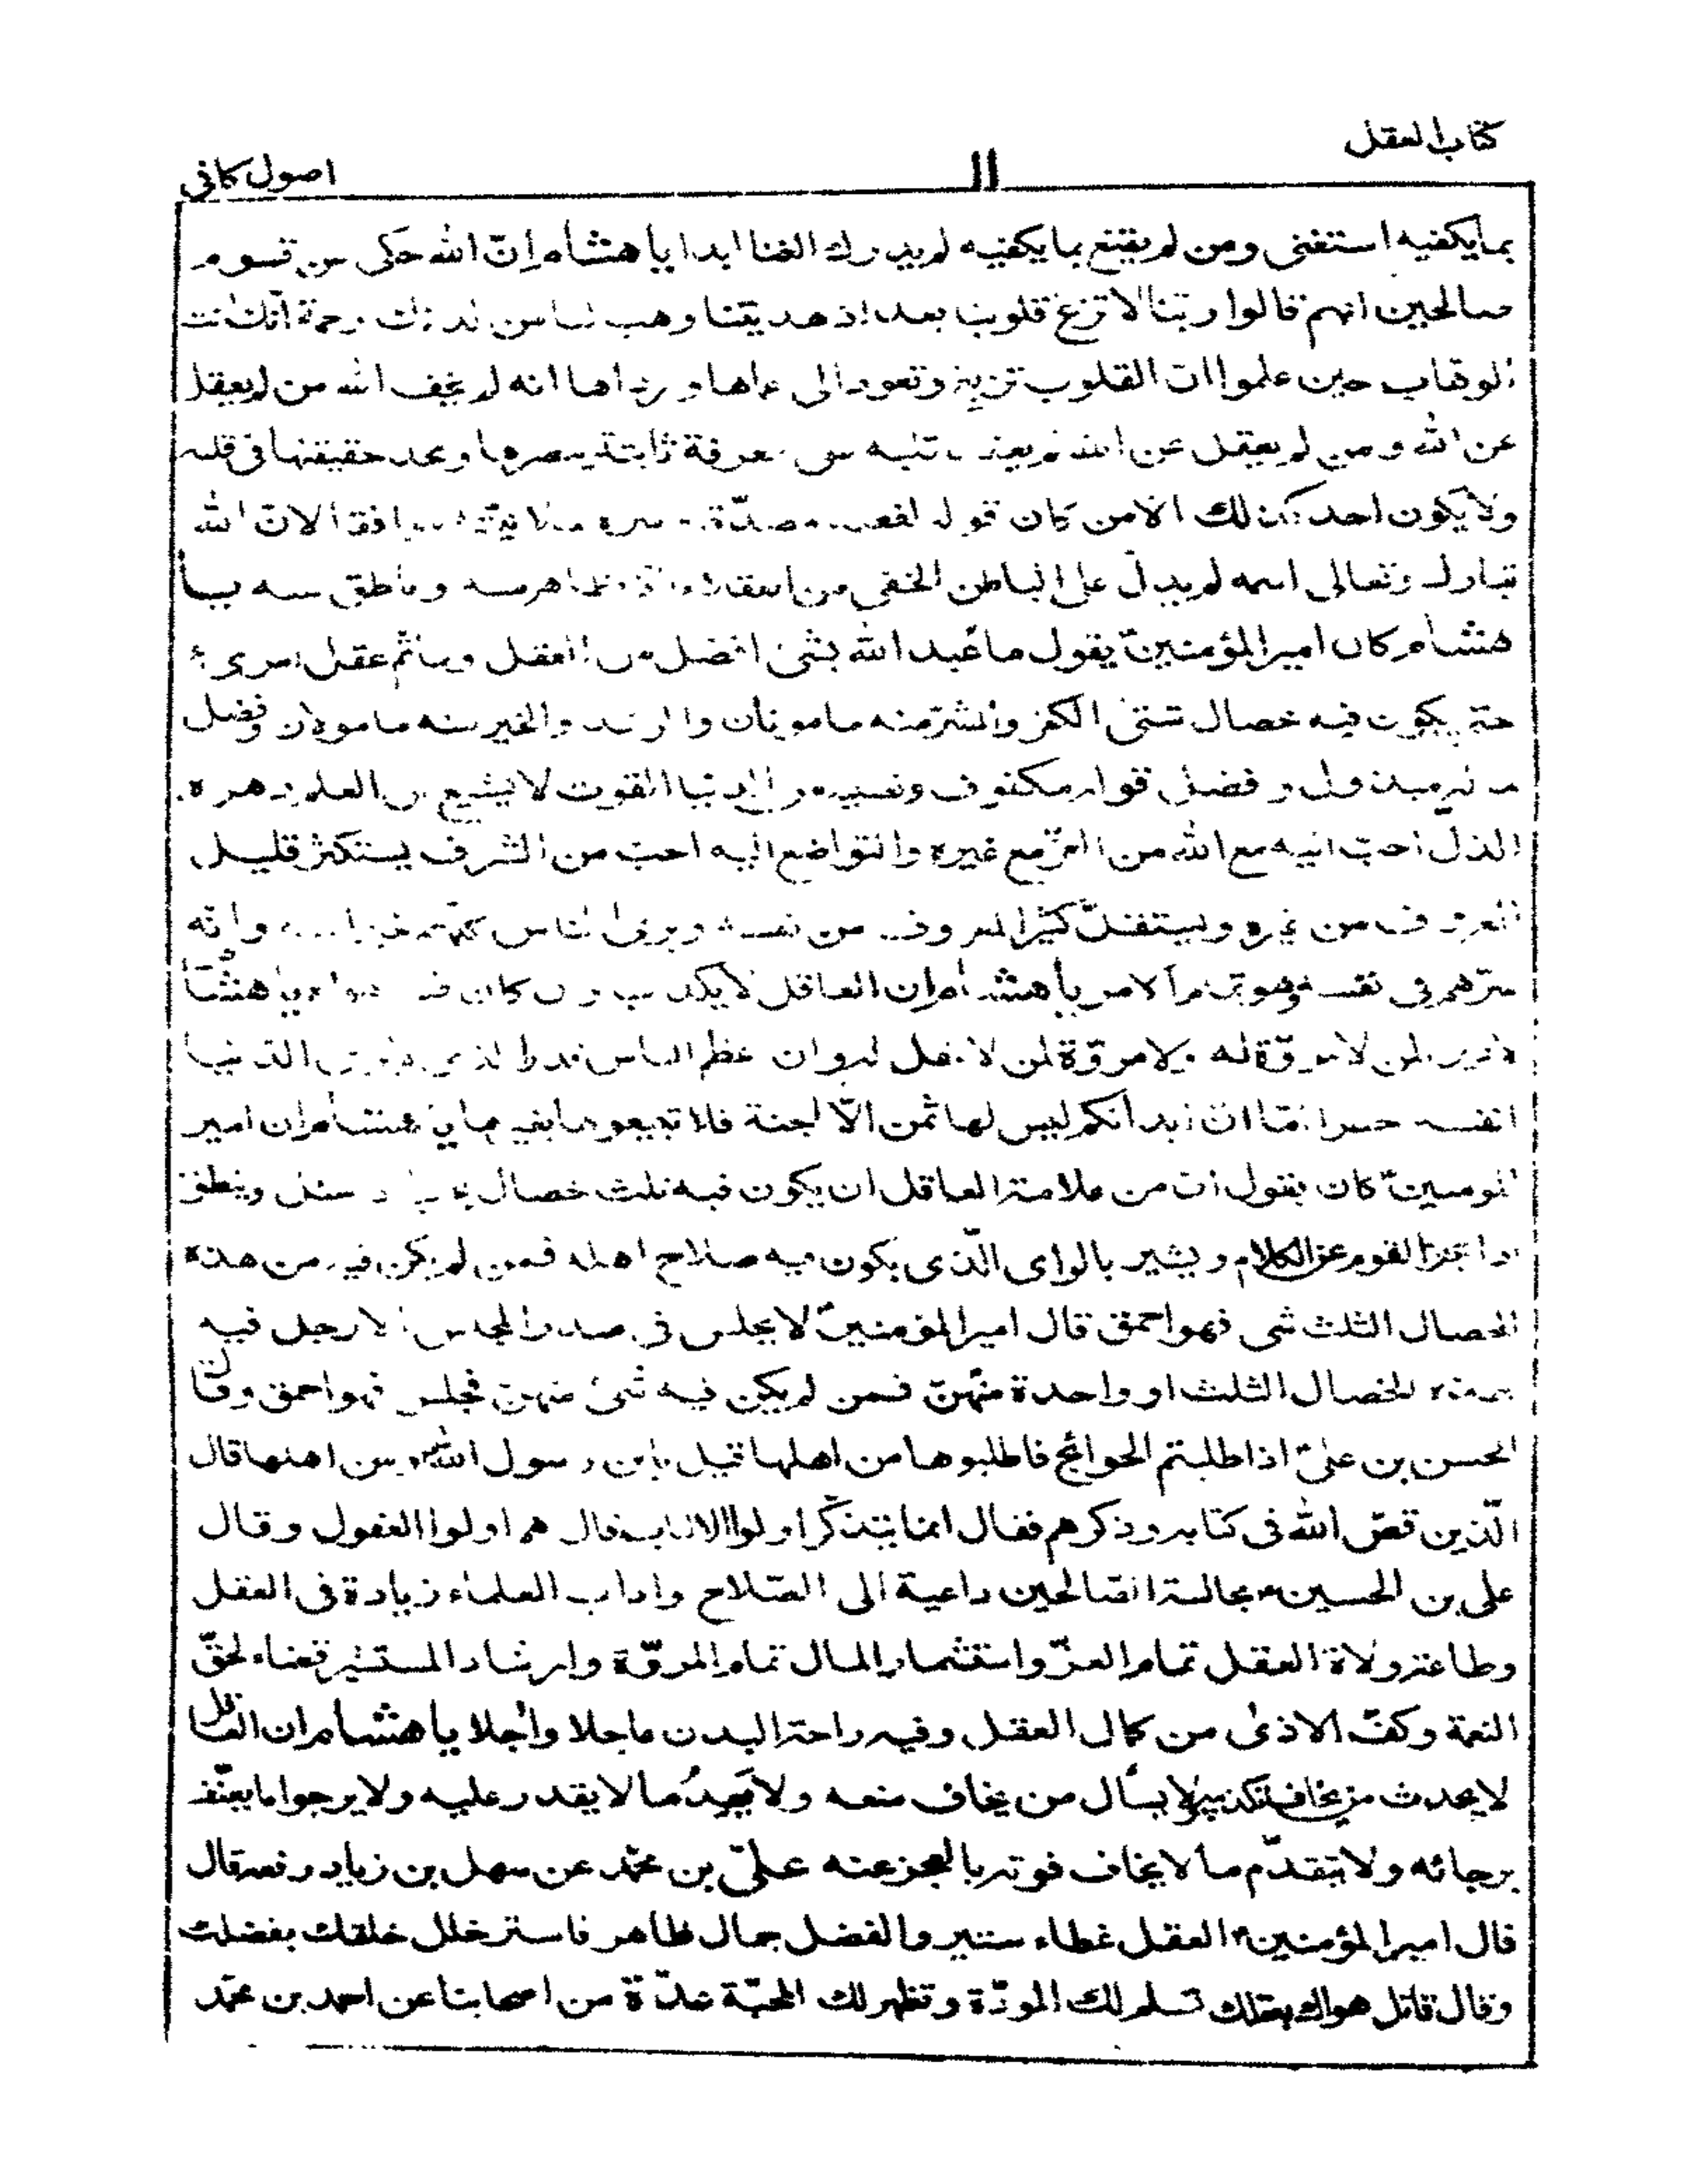 كتاب العقل
١١
اصول كافى
بما يكفيه استغنى ومن لم يقنع بما يكفيه لم يدرك الغنا ابدا يا هشام انّ الله حكى عن قوم
صالحين انهم قالوا ربّنا لا تزغ قلوبنا بعد اذ هديتنا وهب لنا من لدنك رحمة انّك انت
الوهّاب حين علموا انّ القلوب تزيغ وتعود الى عماها ورداها انه لم يخف الله من لم يعقل
عن الله ومن لم يعقل عن الله لم يعقد قلبه على معرفة ثابتة يبصرها ويجد حقيقتها فى قلبه
ولا يكون احد كذلك الا من كان قوله لفعله مصدّقا وسره لعلانيته موافقا لانّ الله
تبارك وتعالى اسمه لم يدلّ على الباطن الخفى من العقل الا بظاهر منه وناطق عنه يا
هشام كان امير المؤمنينؑ يقول ما عُبد الله بشئ افضل من العقل وما تمّ عقل امرئ
حتى يكون فيه خصال شتى الكفر والشرّ منه مامونان والرشد والخير منه مامولان وفضل
ماله مبذول وفضل قوله مكفوف ونصيبه من الدنيا القوت لا يشبع من العلم دهره
الذلّ احبّ اليه مع الله من العزّ مع غيره والتواضع اليه احبّ من الشرف يستكثر قليل
المعروف من غيره ويستقلّ كثير المعروف من نفسه ويرى الناس كلّهم خيرا منه وانّه
شرّهم فى نفسه وهو تمام الامر يا هشام ان العاقل لا يكذب وان كان فيه هواه يا هشام
لا دين لمن لا مروّة له ولا مروّة لمن لا عقل له وان اعظم الناس قدرا الذى لا يرى الدنيا
لنفسه خطرا امّا انّ ابدانكم ليس لها ثمن الّا الجنة فلا تبيعوها بغيرها يا هشام ان امير
المومنينؑ كان يقول انّ من علامة العاقل ان يكون فيه ثلث خصال يجيب اذا سئل وينطق
اذا عجز القوم عن الكلام ويشير بالراى الّذى يكون فيه صلاح اهله فمن لم يكن فيه من هذه
الخصال الثلث شى فهو احمق قال امير المؤمنينؑ لا يجلس فى صدر المجلس الا رجل فيه
هذه الخصال الثلث او واحدة منهنّ فمن لم يكن فيه شئ منهنّ فجلس فهو احمق وقال
الحسن بن علىؑ اذا طلبتم الحوائج فاطلبوها من اهلها قيل يا بن رسول الله ومن اهلها قال
الّذين قصّ الله فى كتابه وذكرهم فقال انما يتذكّر اولوا الالباب قال هم اولوا العقول وقال
على بن الحسينؑ مجالسة الصّالحين داعية الى الصّلاح واداب العلماء زيادة فى العقل
وطاعة ولاة العقل تمام العزّ واستثمار المال تمام المروّة وارشاد المستشير قضاء لحقّ
النعمة وكفّ الاذى من كمال العقل وفيه راحة البدن عاجلا واٰجلا يا هشام ان العاقل
لا يحدث من يخاف تكذيبه ولا يسأل من يخاف منعه ولا يَعِدُ ما لا يقدر عليه ولا يرجوا ما يعنّف
برجائه ولا يتقدّم ما لا يخاف فوته بالعجز عنه علىّ بن محمّد عن سهل بن زياد رفعه قال
قال امير المؤمنينؑ العقل غطاء ستير والفضل جمال ظاهر فاستر خلل خلقك بفضلك
وقال قاتل هواك بعقلك تسلم لك المودّة وتظهر لك المحبّة عدّة من اصحابنا عن احمد بن محمّد